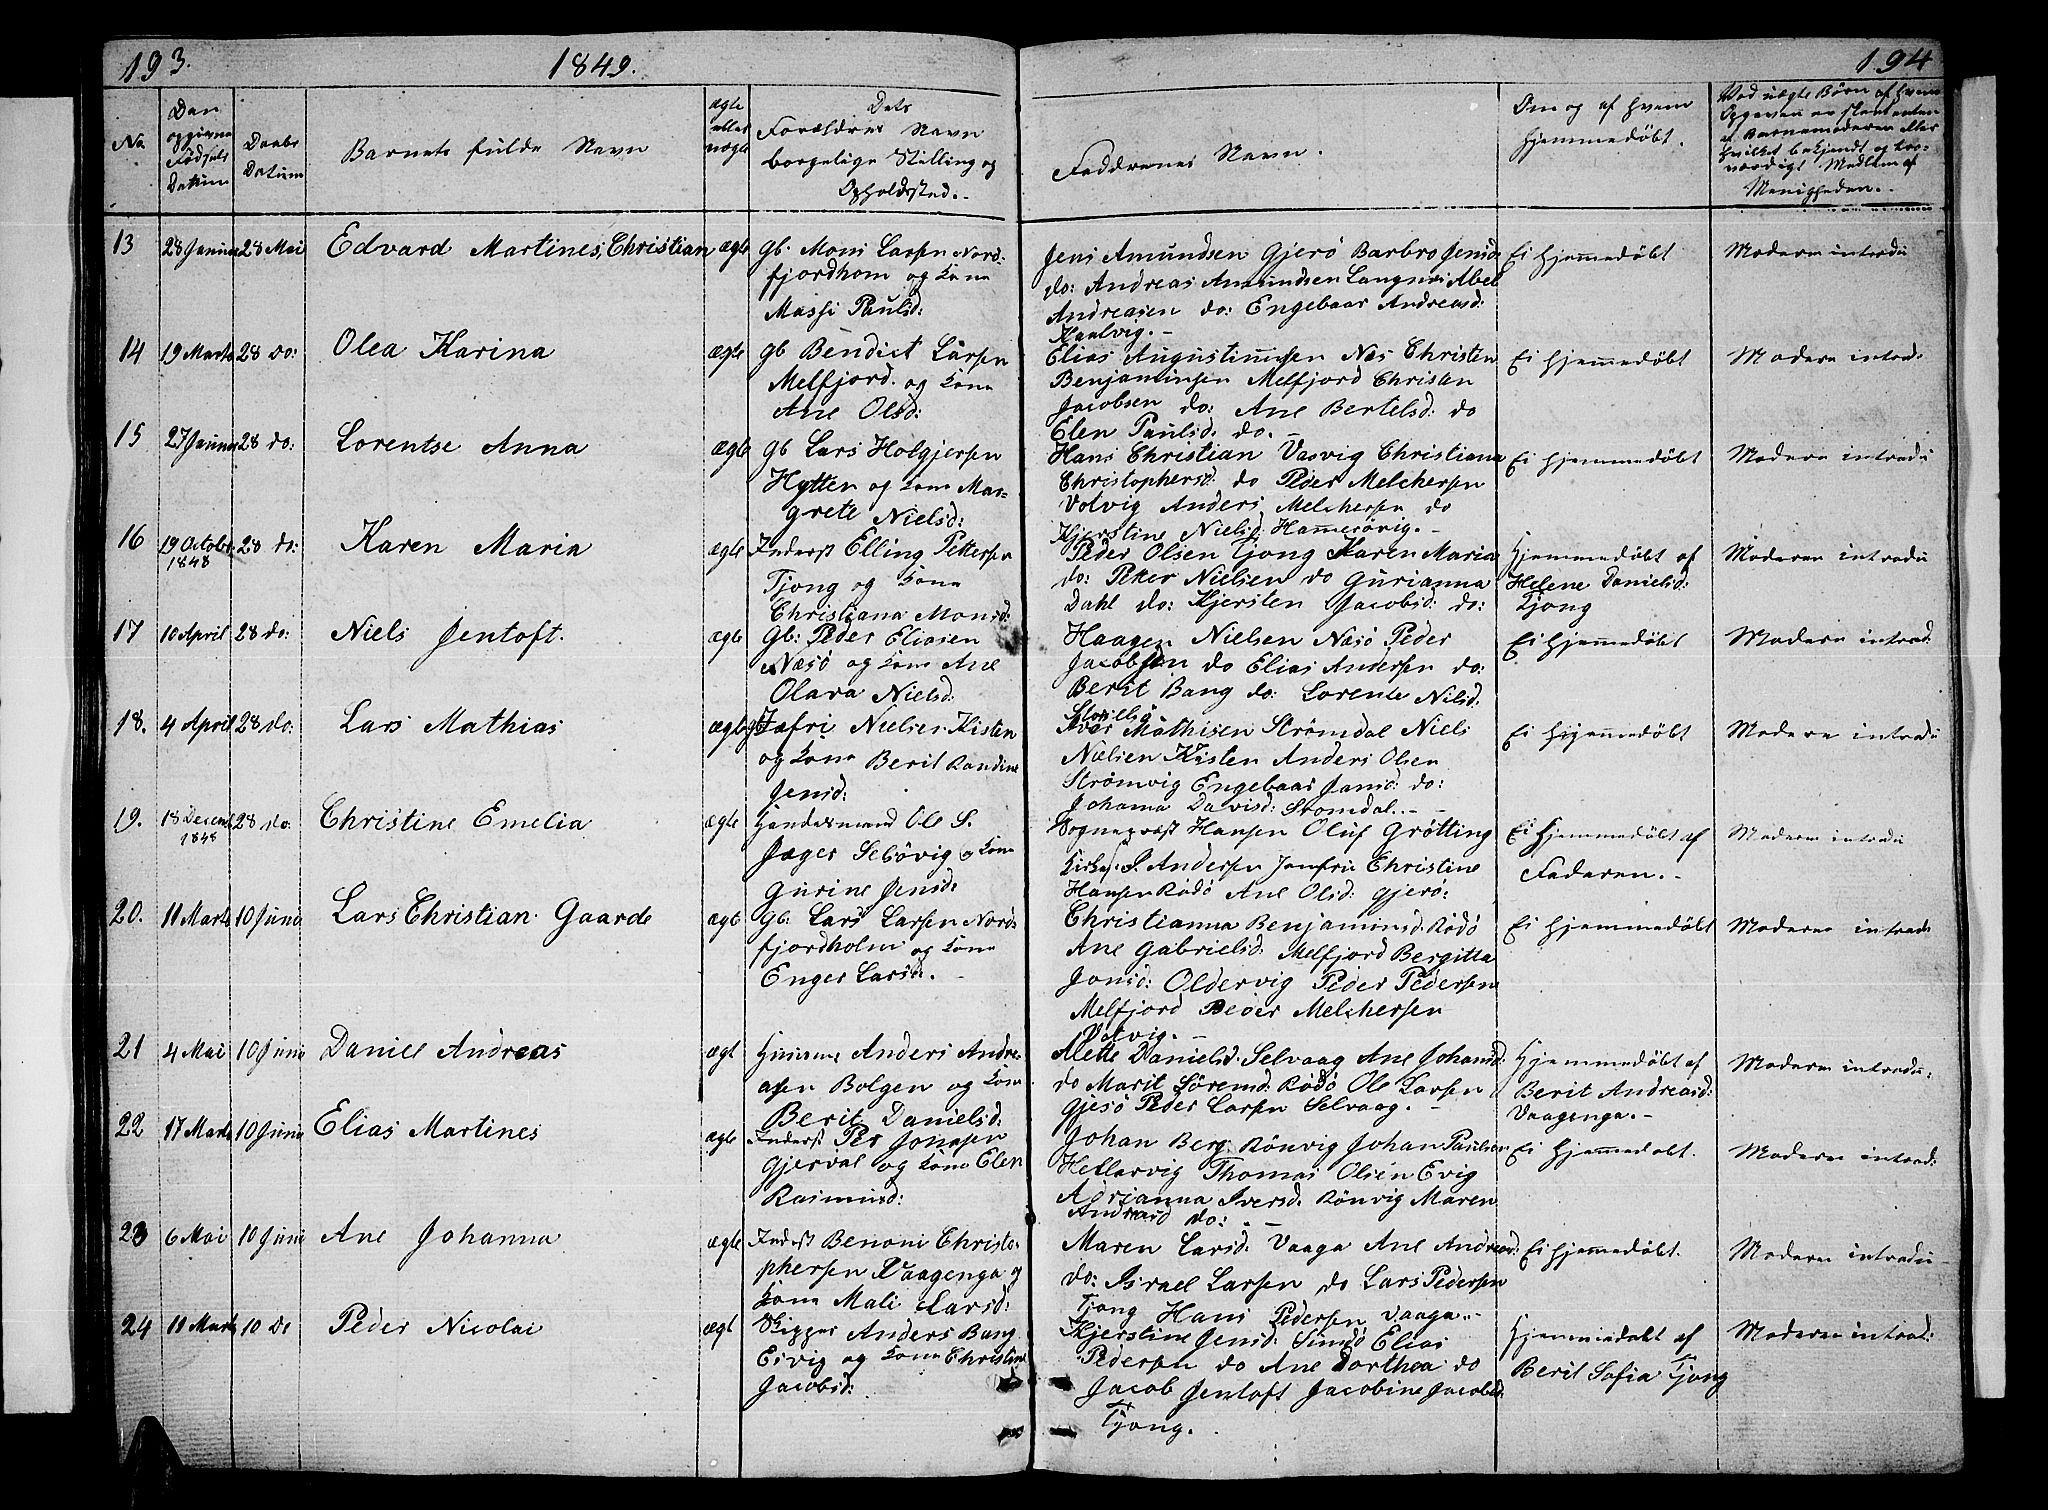 193.
1849.
194
No
Den opgivne Fødsels Datum
Daabs Datum
Barnets fulde Navn
ægte eller uægte
Dets Forældres Navn borgelige Stilling og Opholdssted.
Faddernes Navn.
Om og af hvem hjemmedøbt.
Menigheden.
13 28 Januar 28 Mai Edvard Martines Christian ægte gb. Mons Larsen Nord-
fjordholm og Kone
Massi Paulsd:
Jens Amundsen Gjerö Barbro Jensd:
do: Andreas Amundsen Langnæs Abel
Andreasen do: Engebaar Andreasd:
Kaalvig.-
Ei hjemmedøbt
Moderen introdu
14 19 Marts 28 do: Olea Karina ægte gb Bendict Larsen
Melfjord. og Kone
Ane Olsd:
Elias Augustinussen Næs Christen
Benjaminsen Melfjord Christen
Jacobsen do: Ane Bertelsd: do
Elen Paulsd: do.-
Ei hjemmedøbt
Moderen introd:
15 27 Januar 28 do: Lorentse Anna ægte gb Lars Holgjersen
Hytten og Kone Mar-
grete Nielsd:
Hans Christian Vasvig Christiana
Christophersd: do Peder Melchersen
Votvig Anders Melchersen do
Kjerstine Nielsd: Hammerövig.-
Ei hjemmedøbt
Moderen introdu
16 19 October 1848 28 do: Karen Maria ægte Inderst Elling Pettersen
Tjong og Kone
Christiana Monsd:
Peder Olsen Tjong Karen Maria
do: Petter Nielsen do Gurianna
Dahl do: Kjersten Jacobsd: do:
Hjemmedøbt af
Helene Danielsd:
Tjong
Moderen introdu
17 10 April 28 do: Niels Jentoft. ægte Gb: Peder Eliasen
Næsö og Kone Ane
Olava Nielsd:
Haagen Nielsen Næsö Peder
Jacobsen do Elias Andersen do:
Berit Bang do: Lorente Nilsd.
Storselsö
Ei hjemmedøbt
Moderen introd:
18. 4 April 28 do: Lars Mathias ægte gb Jæfri Nielsen Kisten
og Kone Berit Randine
Jensd:
Iver Mathisen Strömdal Niels
Nielsen Kisten Anders Olsen
Strömvig Engebaar Jansd: do:
Johanna Davisd: Stromdal.-
Ei hjemmedøbt
Moderen introdu
19. 18 Decemb 1848 28 do: Christine Emelia ægte Handesmand Ole S.
Jæger Selsövig og Kone
Gurine Jensd:
Sognepræst Hansen Oluf Grötting
Kirkes: P. Andersen Jomfru Christine
Hansen Rödö Ane Olsd: Gjerö:
Ei hjemmedøbt af
Faderen.-
Moderen introdu
20. 11 Marts 10 Juni Lars Christian Gaarde ægt Gb: Lars Larsen Nord-
fjordholm og Kone
Enger Larsd.-
Christianna Benjaminsd: Rödö
Ane Gabrielsd: Melfjord Bergitta
Jonsd: Oldervig Peder Pedersen
Melfjord Peder Melchersen
Votvig.-
Ei hjemmedøbt
Moderen introd:
21 4 Mai 10 Juni Daniel Andreas ægt Huusm Anders Andre-
asen Bolgen og Kone
Berit Danielsd:
Alette Danielsd: Selvaag Ane Johansd:
do Marit Sörensd: Rödö Ole Larsen
Gjesö Peder Larsen Selvaag.-
Hjemmedøbt af
Berit Andreasd:
Vaagenga.-
Moderen introdu:
22 17 Marts 10 Juni Elias Martines ægte Inderst Per Jonasen
Gjerval og Kone Elen
Rasmusd:
Johan Berg Rönvig Johan Paulsen
Hellarvig Thomas Olsen Evig
Adrianna Iversd: Rönvig Maren
Andreasd do:.-
Ei hjemmedøbt.
Moderen introd:
23 6 Mai 10 Juni Ane Johanna ægte Inderst Benoni Christo-
phersen Vaagenga og
Kone Mali Larsd:
Maren Larsd: Vaaga Ane Andreasd:
do: Israel Larsen do Lars Pedersen
Tjong Hans Pedersen Vaaga.-
Ei hjemmedøbt.
Moderen introdu
24 11 Marts 10 Do Peder Nicolai ægt Skipper Anders Bang
Esvig og Kone Christine
Jacobsd:
Kjerstine Jensd: Sundö Elias
Pedersen do Ane Dorthea do
Jacob Jentoft Jacobine Jacobsd:
Tjong.
Hjemmedøbt af
Berit Sofia Tjong
Moderen introd: